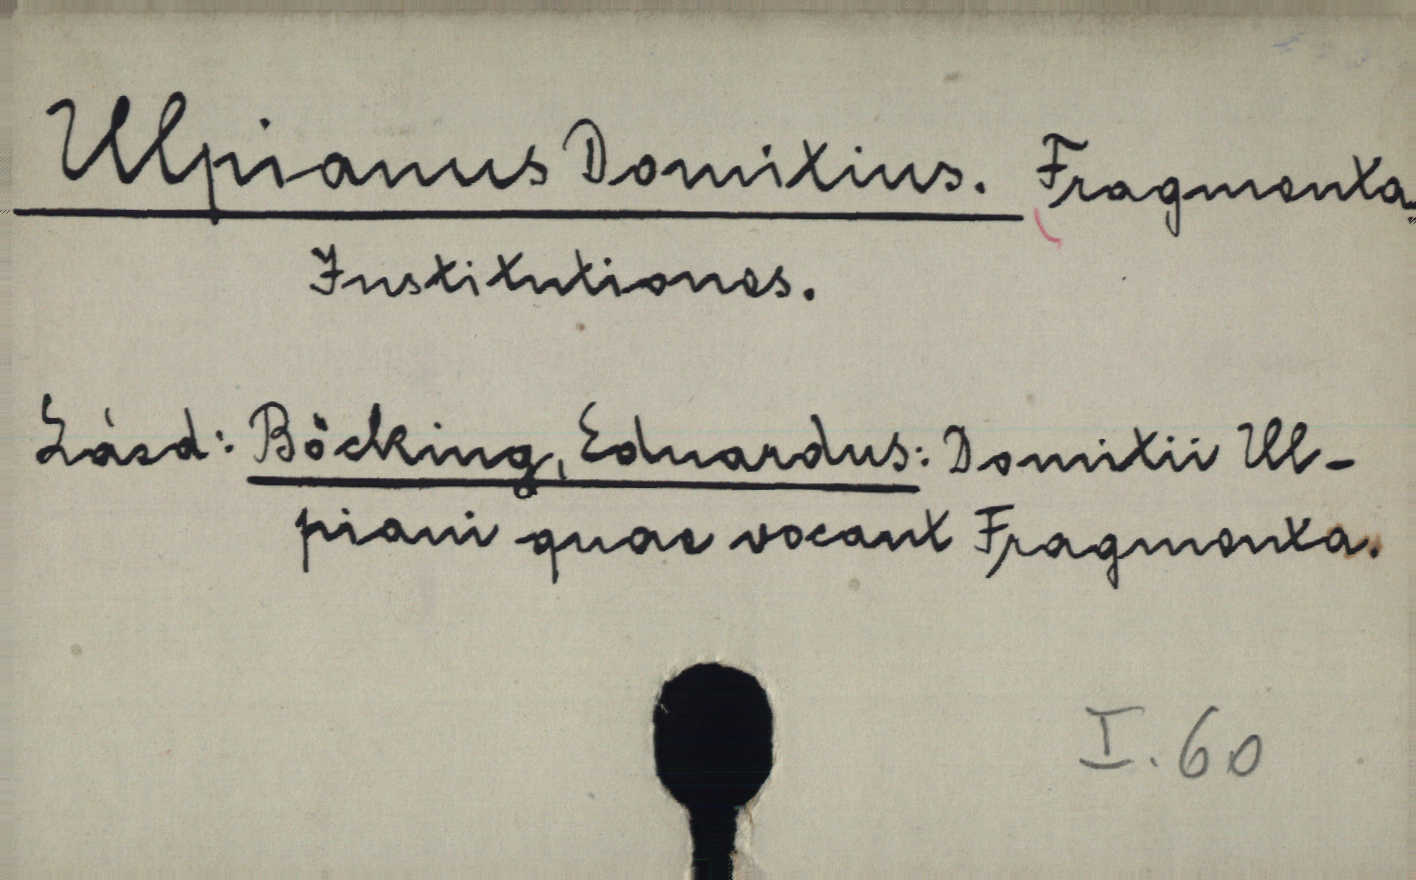 Ulpianus Domitius. Fragmenta.
Institutiones.
Lásd: Böcking, Eduardus: Domitii Ul-
piani quae vocant Fragmenta.
I. 60